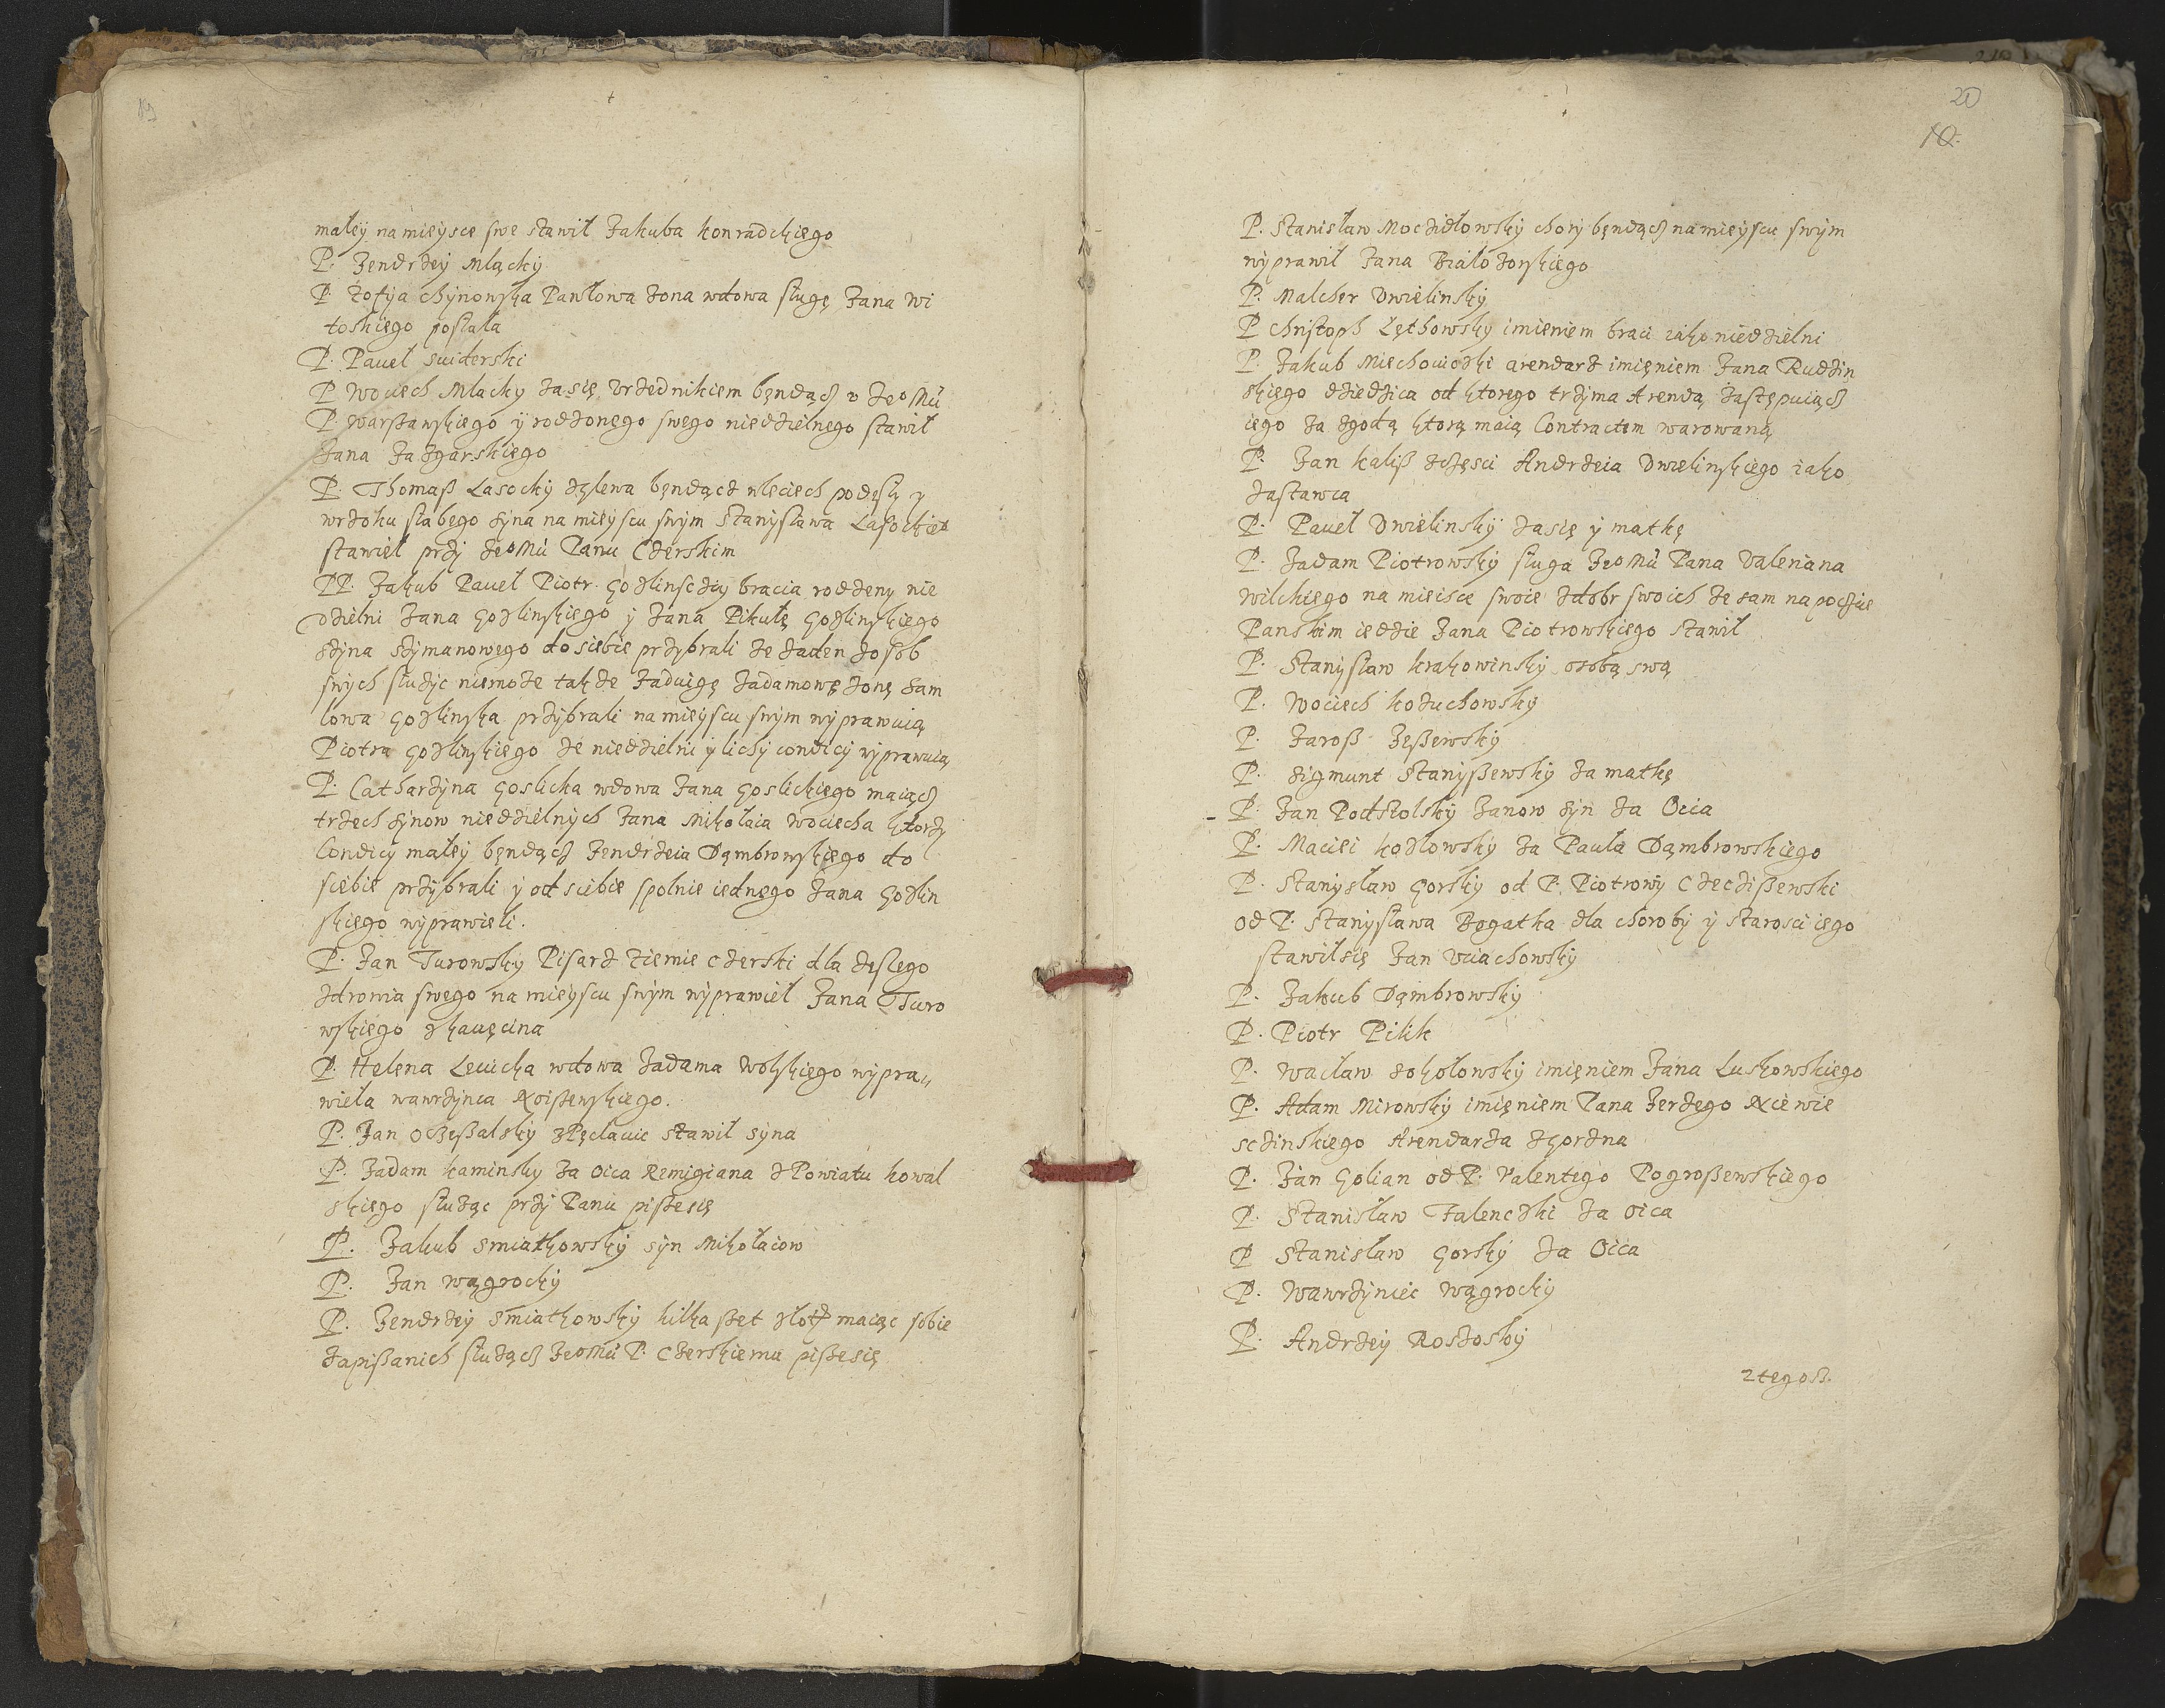 19
małeÿ na mieysce swe stawił Jakuba konradckiego
P. Jendrzey Mlącky
P. Zofija chÿnonska Pawłowa zona wdowa sługę Jana Wi
toskiego posłała
P. Pavel suiderski
P Wociech Mlacky za się Vrzednikiem będącz v JeoMci
P. Warszawskiego ÿ rodzonego swego niedzielnego stawił
Jana Jazgarskiego
P. Thomaß Lasocky będącz wleciech podeszły y
wzroku słabego syna na mieyscu swÿm Stanysława Lasockieo
stawiel przÿ JeoMci Panu Czerskim
PP. Jakub Pavel Piotr Gozlinsczÿ bracia rodzeny nie
dzielni Jana Gozlinskiego ÿ Jana Pikułę Gozlinskiego
szÿna Szÿmanowego do siebie przybrali ze zaden zosob
swÿch służÿc niemoze takze Jaduigę Jadamowę zonę sam
lowa Gozlinska przÿbrali na mieyscu swÿm wyprawuią
Piotra Gozlinskiego ze niedzielni ÿ lichÿ condicÿ wyprawuią
P. Catharzÿna Goslicka wdowa Jana Goslickiego maiącz
trzech sÿnow niedzielnÿch Jana Mikołaia Wociecha ktorzÿ
Condicÿ małeÿ będącz Jendrzeia Dąmbrowskiego do
siebie przÿbrali ÿ od siebie spolnie iednego Jana Gozlin
skiego wyprawieli.
P. Jan Turowsky Pisarz Ziemie czerski dla zesłego
zdrowia swego na mieyscu swÿm wyprawiel Jana Turo
wskiego
P. Helena Leuicka wdowa Jadama Wolskiego wypra„
wiela wawrzÿnca Roißewskiego.
P. Jan Oczeßalsky zRęclauic stawil sÿna
P. Jadam kaminsky za oica Remigiana zPowiatu kowal
skiego służąc przÿ Panu pißesię
P. Jakub smiatkowsky sÿn Mikołaiow
P. Jan wągrocky
P. Jendrzey smiatkowsky kilka ßet złotz maiąc sobie
zapißanich służącz JeoMci P. Czerskiemu pißesię
20
10.
P. Stanisław Moczidłowsky chorÿ będącz na mieyscu swÿm
wÿprawił Jana Białozorskiego
P. Malcher Dwielinsky
P christoph Lęthowsky imieniem braci iako niedzielni
P. Jakub Miechowiczki arendarz imięniem Jana Rudzin
skiego dziedzica od ktorego trzÿma Arendą zastępuiącz
iego za zgodą ktorą maią Contractem warowaną
P. Jan kaliß zczęsci Andrzeia Dwielinskiego iako
zastawca
P. Pavel Dwielinskÿ zasię ÿ matkę
P. Jadam Piotrowsky sługa JeoMci Pana Valeriana
Wilckiego na mieisce swoie zdobr swoich ze sam na poczcie
Panskim iedzie Jana Piotrowskiego stawił
P. Stanysław krakowinsky osobą swą
P. Wociech kozuchowsky
P. Jaroß Jeßewsky
P. Sigmunt Stanyßewsky za matkę
P. Jan Podstolsky Janow sÿn za Oica
P. Maciei kozlowsky za Pawla Dąmbrowskiego
P. Stanysław Gorsky od P. Piotrowÿ Czeczißewski
od P. Stanysława Bogatka dla chorobÿ ÿ starosci iego
stawiłsię Jan Vciachowsky
P. Jakub Dąmbrowsky
P. Piotr Pilik
P. Wacław sokołowsky imięniem Jana Luskowskiego
P. Adam Mirowsky imięniem Pana Jerzego Niewie
sczinskiego Arendarza zGorzna
P. Jan Golian od P. Valentego Pogroßewskiego
P. Stanisław Falenczki za oica
P Stanisław Gorsky za Oica
P. Wawrzÿniec Wągrocky
P. Andrzey Roszosky
Ztegoß.